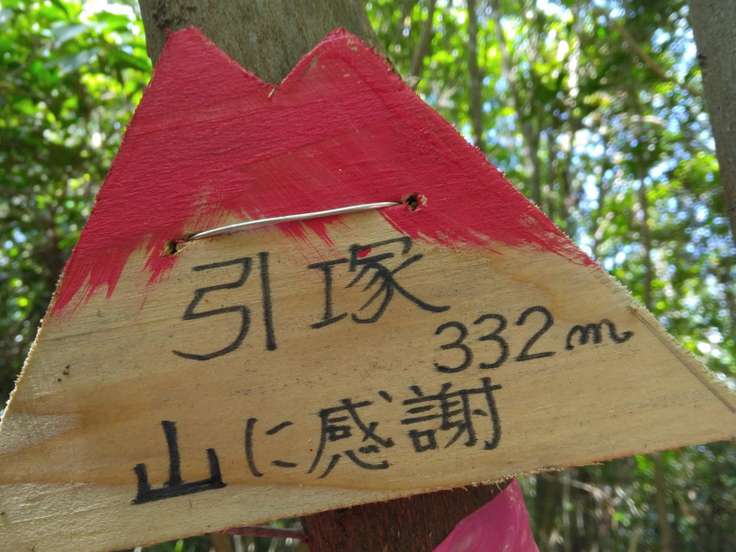 引塚
332m
山に感謝